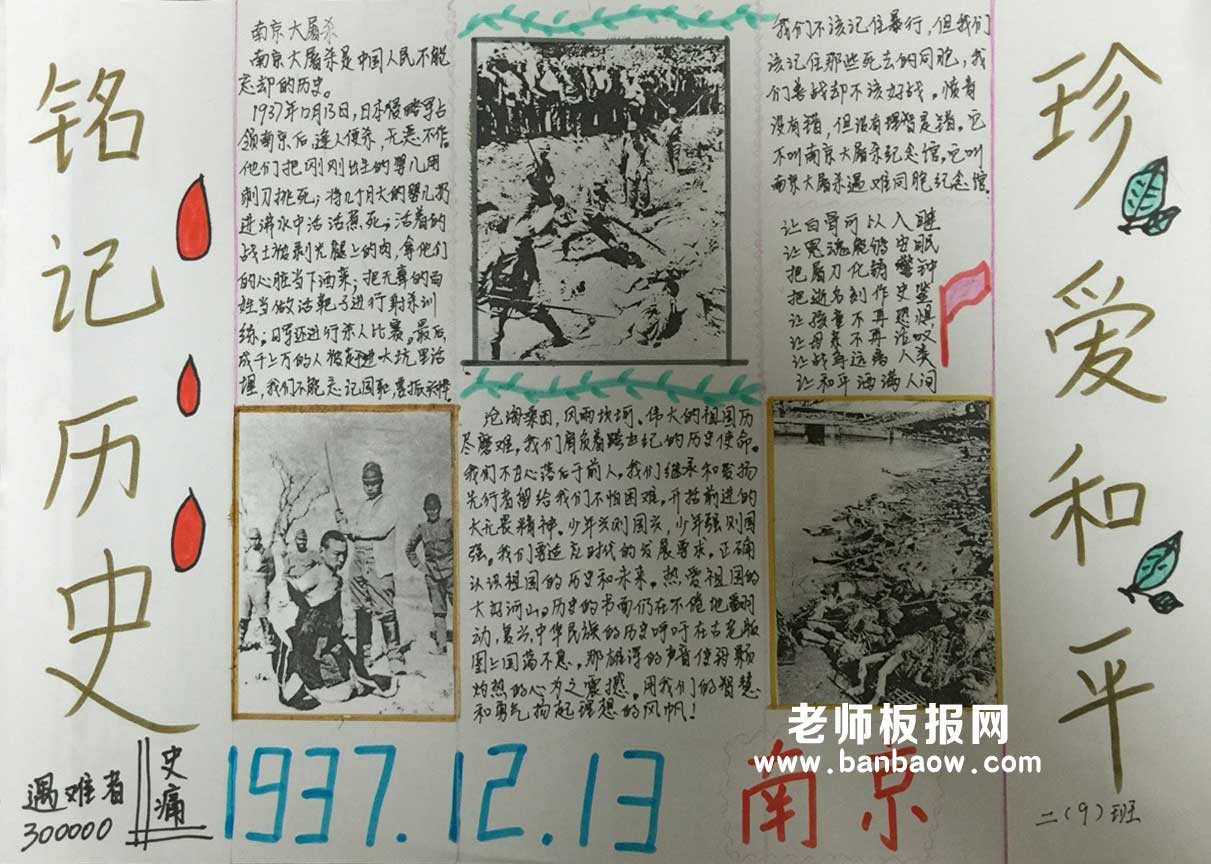 铭记历史
南京大屠杀
南京大屠杀是中国人民不能
忘却的历史。
1937年12月13日,日本侵略军占
领南京后,逢人便杀,无恶不作。
他们把刚刚出生的婴儿用
刺刀挑死;将几个月大的婴儿扔
进沸水中活活煮死;活着的
战士被剥光腿上的肉,拿他们
的心脏当下酒菜;把无辜的百
姓当做活靶子进行射杀训
练;日军还进行杀人比赛。最后,
成千上万的人被赶进大坑里活
埋,我们不能忘记国耻,要振兴中华
沧海桑田,风雨坎坷。伟大的祖国历
尽磨难,我们肩负着跨世纪的历史使命。
我们不甘心落后于前人,我们继承和发扬
先行者留给我们不怕困难,开拓前进的
大无畏精神。少年兴则国兴,少年强则国
强。我们要适应时代的发展要求,正确
认识祖国的历史和未来,热爱祖国的
大好河山。历史的书面仍在不倦地翻
动,复兴中华民族的历史呼吁在古老版
图上回荡不息,那雄浑的声音使每颗
灼热的心为之震撼,用我们的智慧
和勇气扬起理想的风帆!
我们不该记住暴行,但我们
该记住那些死去的同胞,我
们善战却不该好战。愤青
没有错,但没有理智是错。它
不叫南京大屠杀纪念馆,它叫
南京大屠杀遇难同胞纪念馆。
让白骨可以入睡
让冤魂能够安眠
把屠刀化铸警钟
把逝名刻作史鉴
让孩童不再恐惧
让母亲不再泣叹
让战争远离人类
让和平洒满人间
珍爱和平
遇难者
300000
史痛
1937.12.13
南京
二(9)班
老师板报网
www.banbaow.com